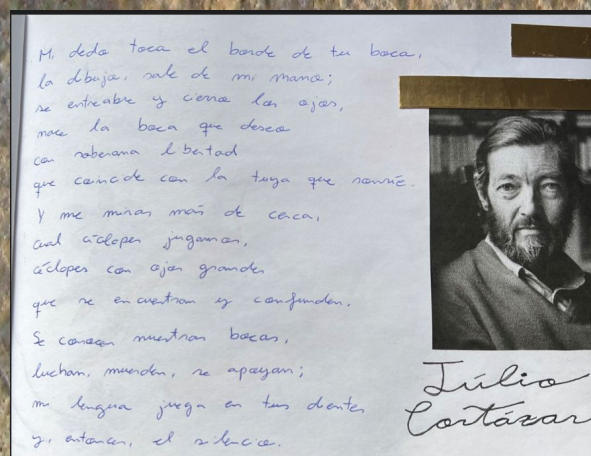 Mi dedo toca el borde de tu boca,
la dibuja, sale de mi mano;
se entreabre y cierra los ojos,
nace la boca que deseo
con soberana libertad
que coincide con la tuya que sonríe.
Y me miras más de cerca,
cual cíclopes jugamos,
cíclopes con ojos grandes
que se encuentran y confunden.
Se conocen nuestras bocas,
luchan, muerden, se apoyan;
mi lengua juega en tus dientes
y, entonces, el silencio.
Júlio
Cortázar